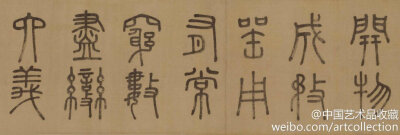 開物
成務
器用
有常
窮數
盡變
義
@中国艺术品收藏
weibo.com/artcollection